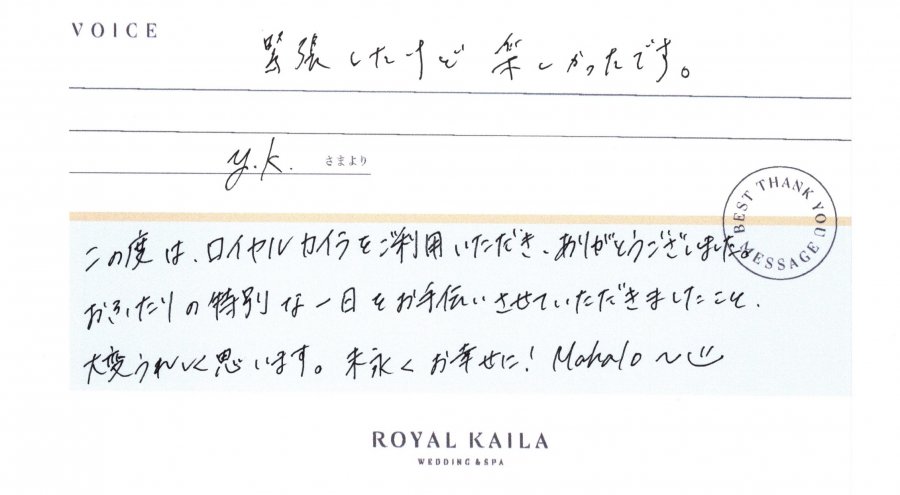 VOICE
緊張したけど 楽しかったです。
y.k. さまより
BEST THANK YOU MESSAGE
この度は、ロイヤルカイラをご利用いただき、ありがとうございました。
おふたりの特別な一日をお手伝いさせていただきましたこと、
大変うれしく思います。末永くお幸せに! Mahalo 〜
ROYAL KAILA
WEDDING & SPA